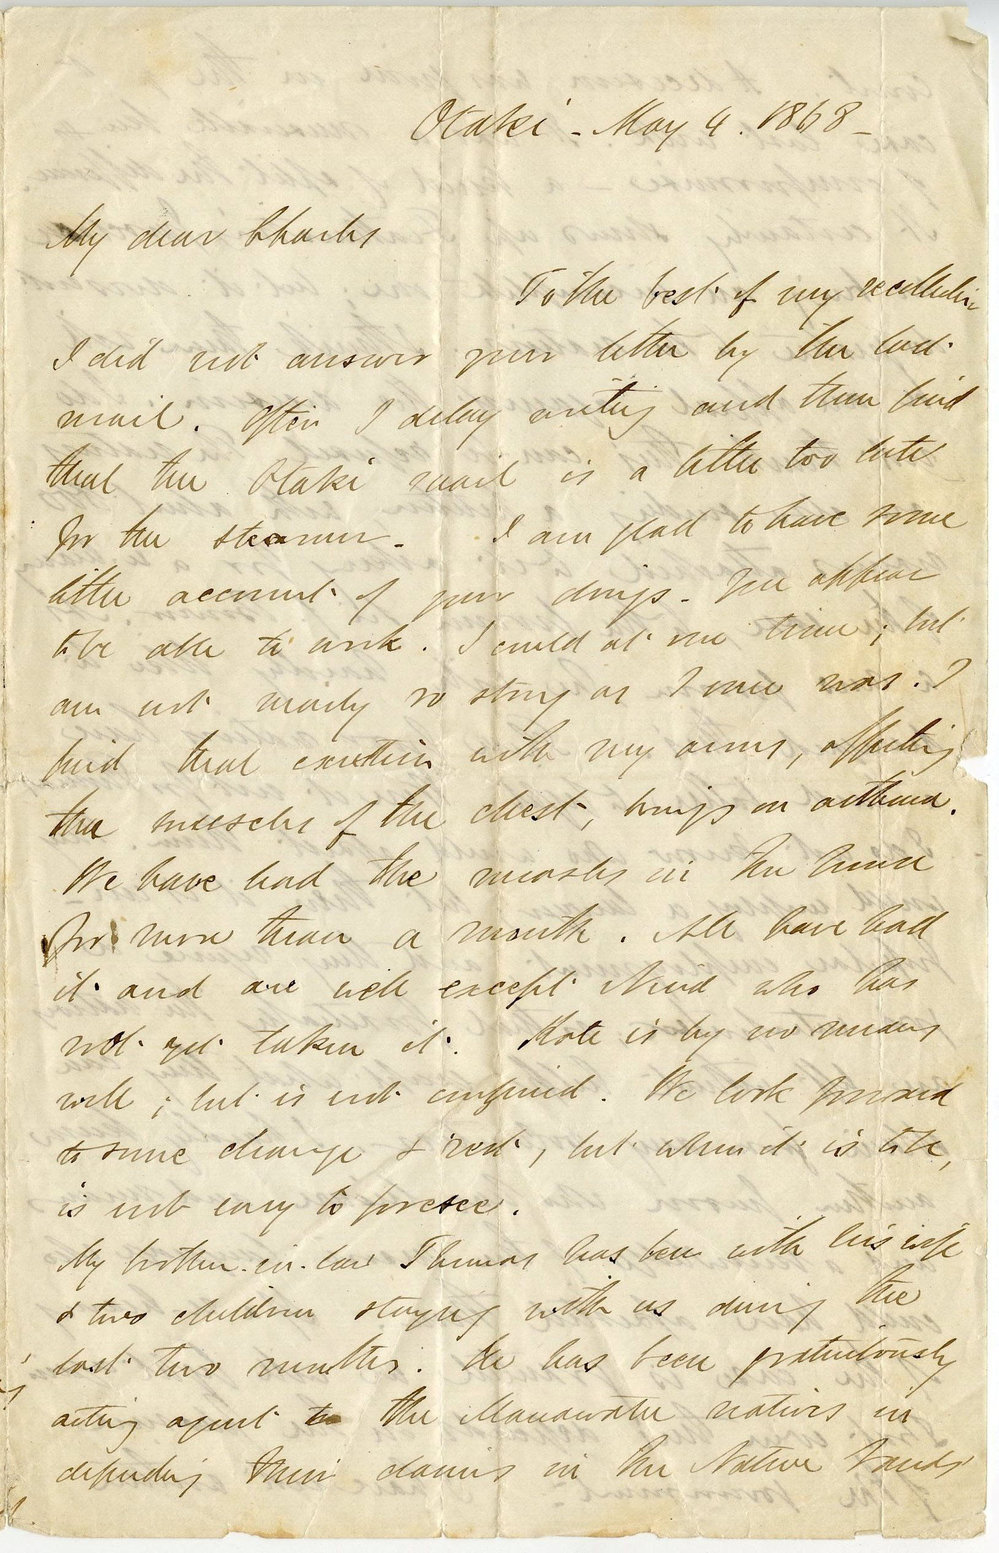 Otaki - May 4. 1868 -
My dear Charles
To the best of my recollection
I did not answer your letter by the last
mail. Often I delay writing and then find
that the Otaki mail is a little too late
for the steamer - I am glad to have some
little account of your doings - You appear
to be able to work. I could at one time; but
am not nearly so strong as I once was. I
find that exertion with my arms, affecting
the muscles of the chest, brings on asthma.
We have had the measles in the house
for more than a month. All have had
it and are well except who has
not yet taken it. Kate is by no means
well; but is not confined. We look forward
to some change & rest, but when it is to be,
is not easy to foresee.
My brother-in-law Thomas has been with his wife
& two children staying with us during the
last two months. He has been gratuitously
acting agent to the Manawatu natives in
defending their claims in the Native Lands